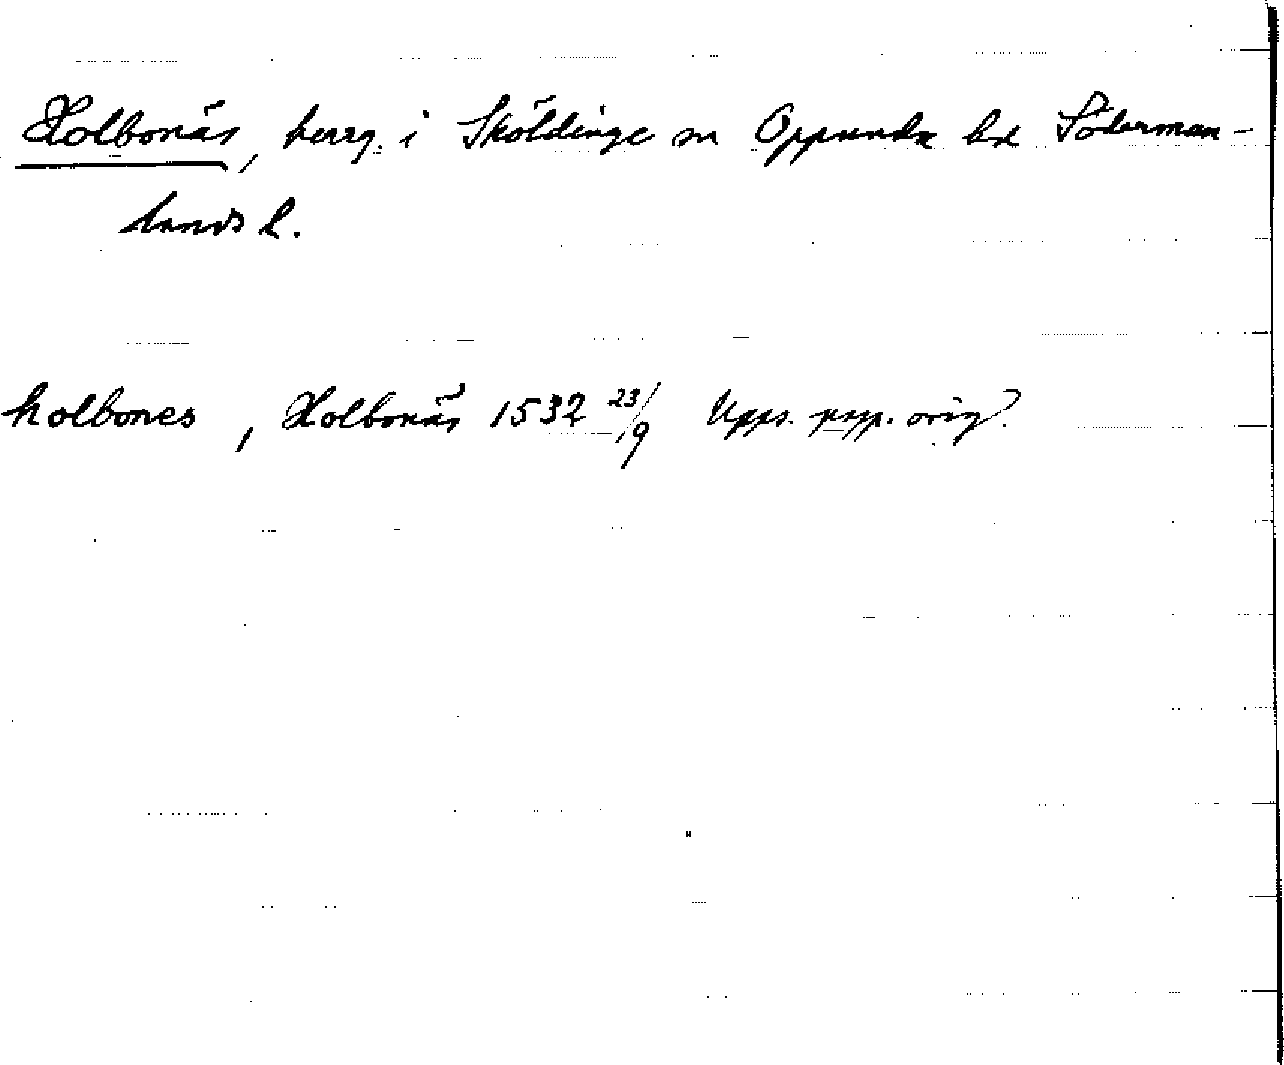 Holbonäs, herrg. i Sköldinge sn Oppunda hd Söderman-
lands l.
holbones, Holbonäs 1532 23/9 Upps. papp. orig.